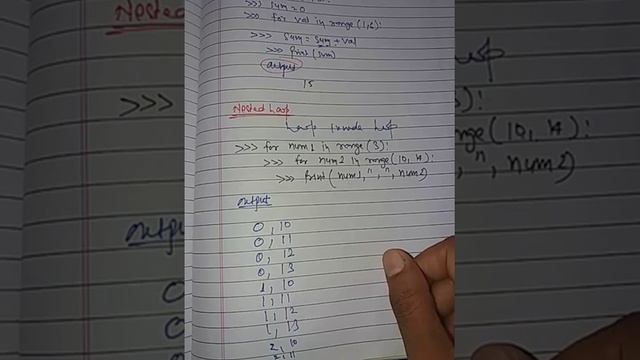 >>> sum = 0
>>> for val in range (1,6):
>>> sum = sum + val
>>> print (sum)
output
15
Nested Loop
Loop inside loop
>>> for num1 in range (3):
>>> for num2 in range (10, 14):
>>> print (num1, ",", num2)
output
0, 10
0, 11
0, 12
0, 13
1, 10
1, 11
1, 12
1, 13
2, 10
2, 11